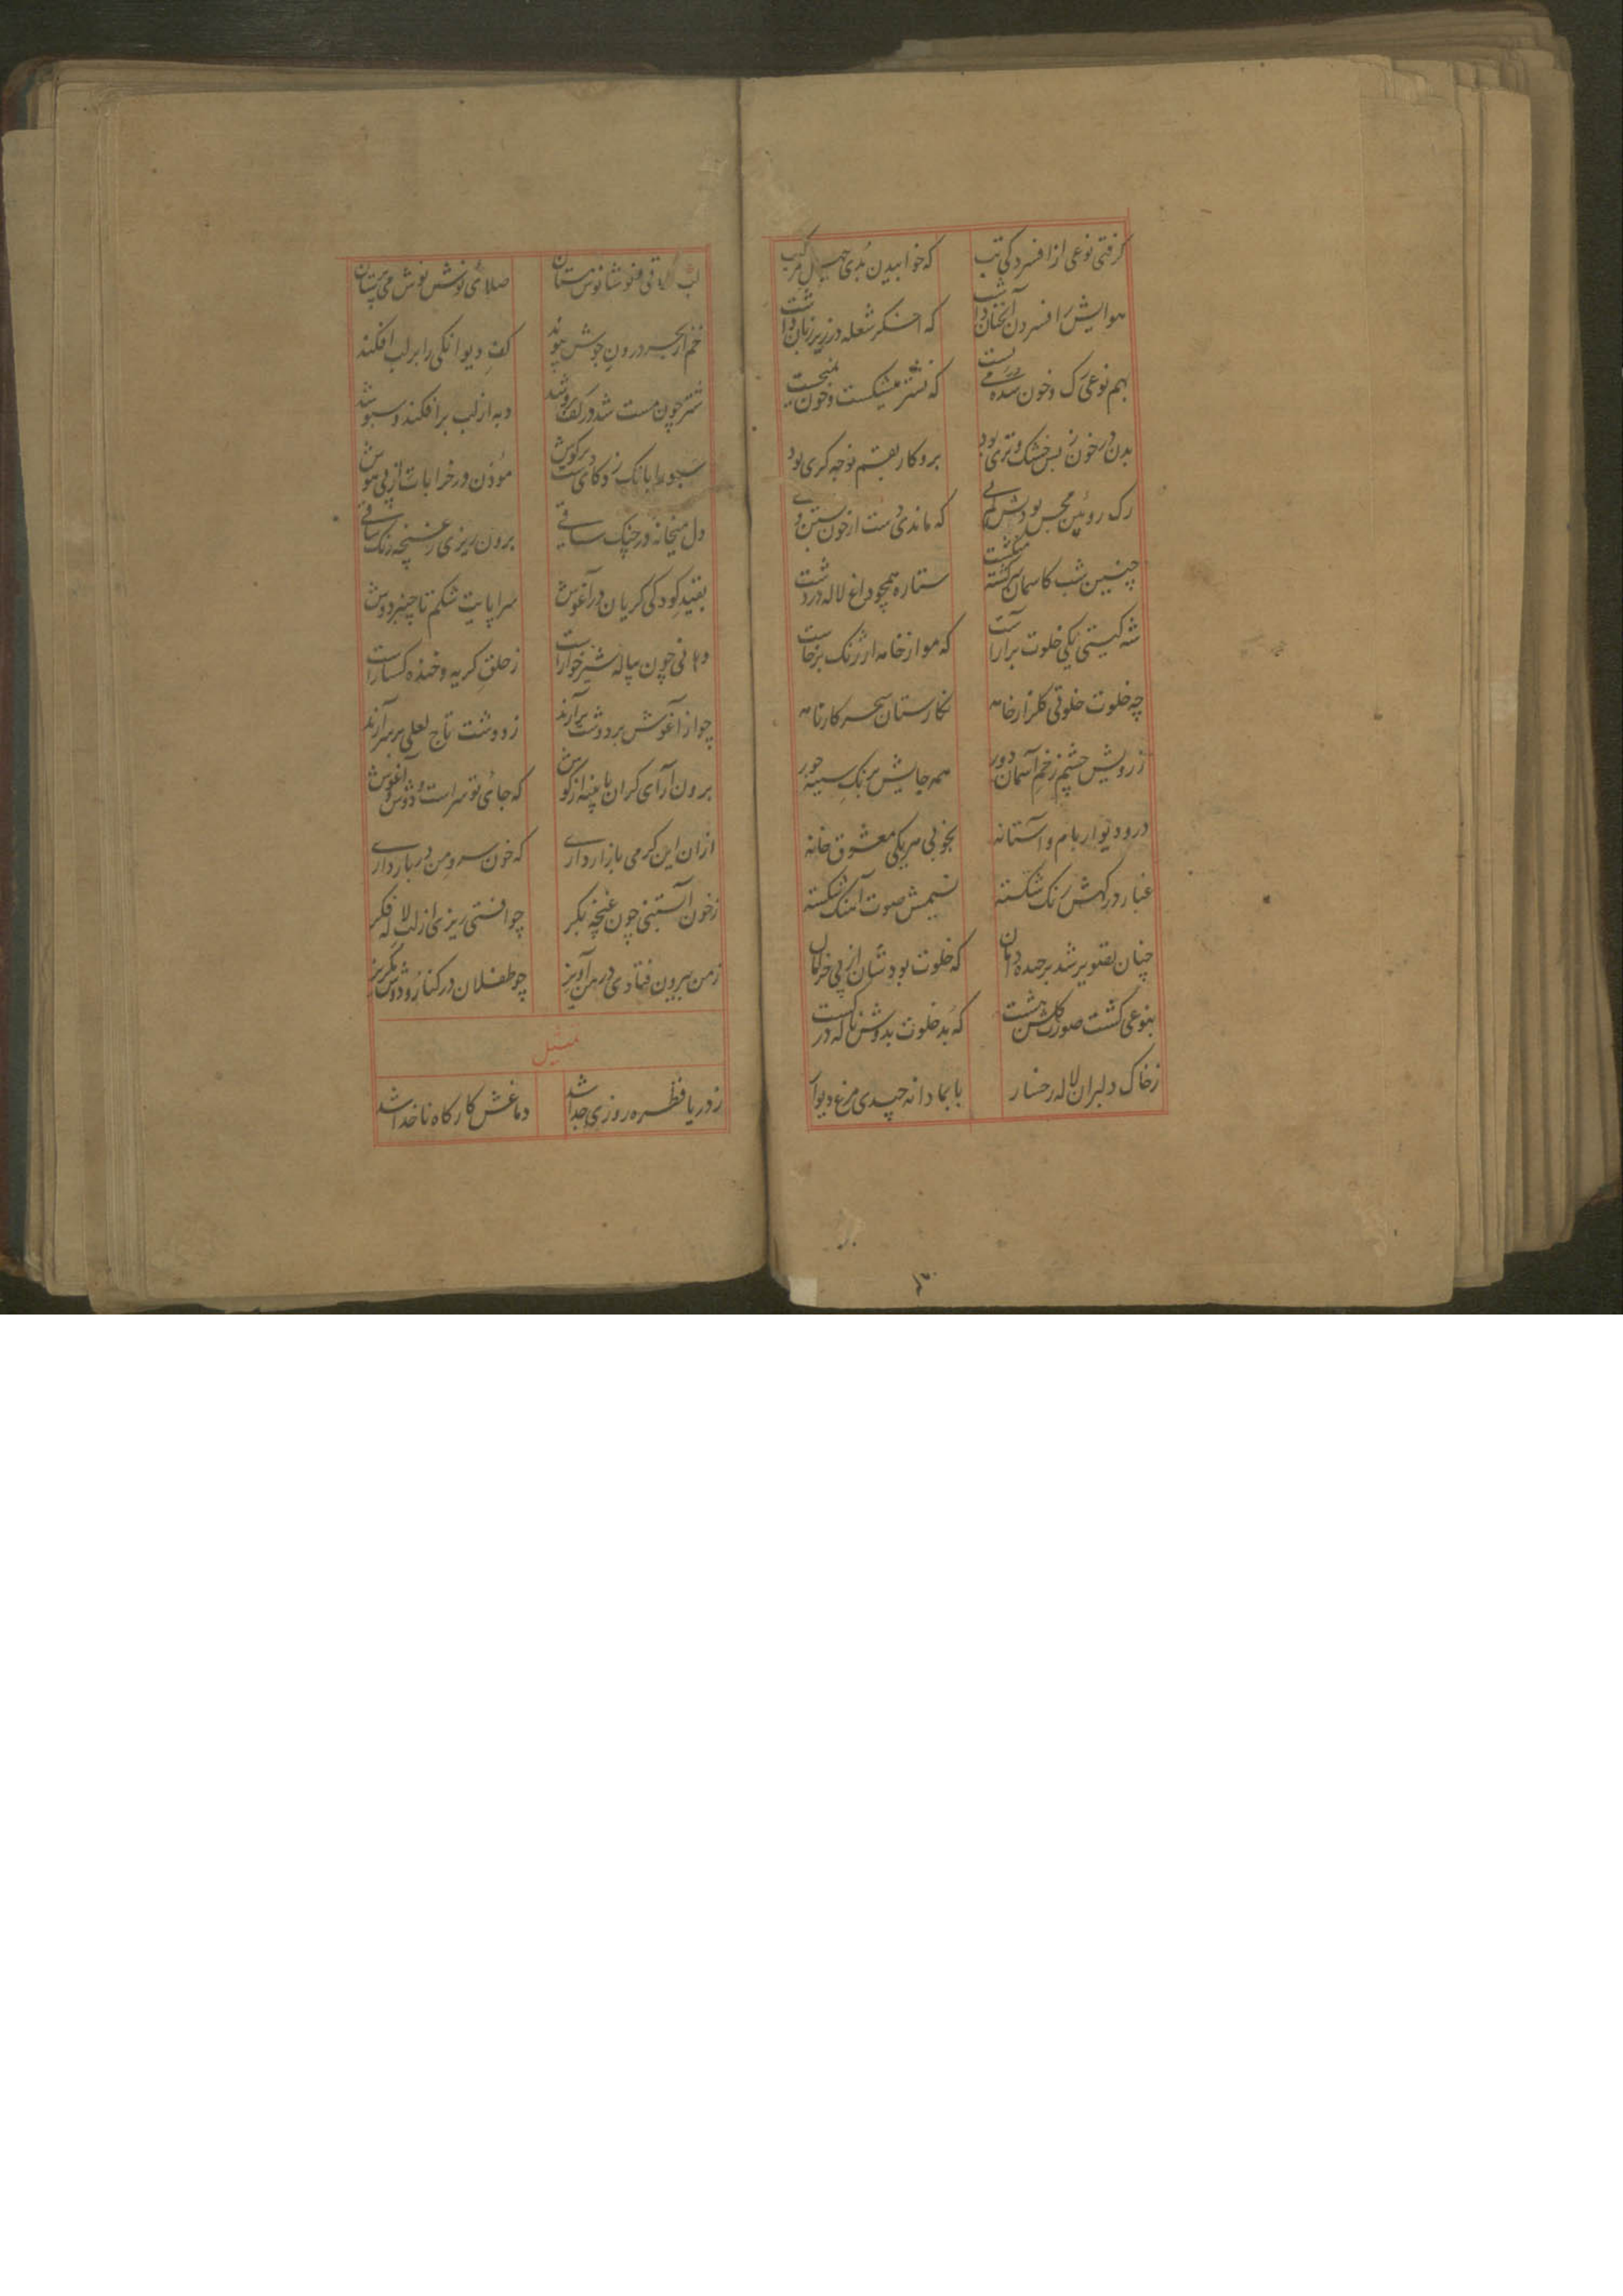 گرفتی نوعی از افسردگی تب که خوابیدن بدی
هوایش را فسردن آنچنان داشت که اخگر شعله در زیر زبان داشت
بهم نوعی رگ و خون که نشتر میشکست و خون
بدن در خون ز بس خشک و تری بود برو کار بقم نوجه گری بود
رگ روئین بودش که ماندی دست از خون بستن وی
چنین شب کاسمان سرگشته میگشت ستاره همچو داغ لاله در دشت
شه گیتی یکی خلوت برآراست که مو از خامه ارژنگ برخاست
چه خلوت خلوتی گلزار خامه نگارستان سحر کارنامه
ز رویش چشم زخم آسمان دور همه جایش برنگ سینه حور
در و دیوار بام و آستانه بخوبی هر یکی معشوق خانه
غبار در گهش رنگ شکسته نسیمش صوت آهنگ شکسته
چنان تصویر شد برچیده دامان که خلوت بود شان از پی خرامان
بنوعی گشت صورت گلشن هشت که بد خلوت بدوشش
ز خاک دلبران لاله رخسار بایما دانه چیدی مرغ دیوار
لب نوشانوش مستان صلای نوش نوش می پرستان
خم از بحر درون جوش پیوند کف دیوانگی را بر لب افکند
شتر چون مست شد در کف خروشد دبه از لب برافکند و
سبو را بانگ مؤذن در خرابات از پی هوش
دل میخانه در چنگ ساقی برون ریزی ز غنچه رنگ ساقی
بقید کودکی گریان در آغوش سراپایت شکم تا چنبر دوش
دهانی چون پیاله شیرخوارست ز حلق گریه و خنده گسارست
چو از آغوش بر دوشت برآرند ز دوشت تاج لعلی بر سر آرند
برون آرای گران با پنبه از گوش که جای تو سر است و دوش و آغوش
ازان این گرمی بازار داری که خون سرو من در بار داری
ز خون آبستنی چون غنچه بکر چو افتی ریزی از لب لاله فکر
ز من بیرون فتادی در من آویز چو طفلان در کنار و دوش مگریز
تمثیل
ز دریا قطره روزی جدا شد دماغش کارگاه ناخدا شد